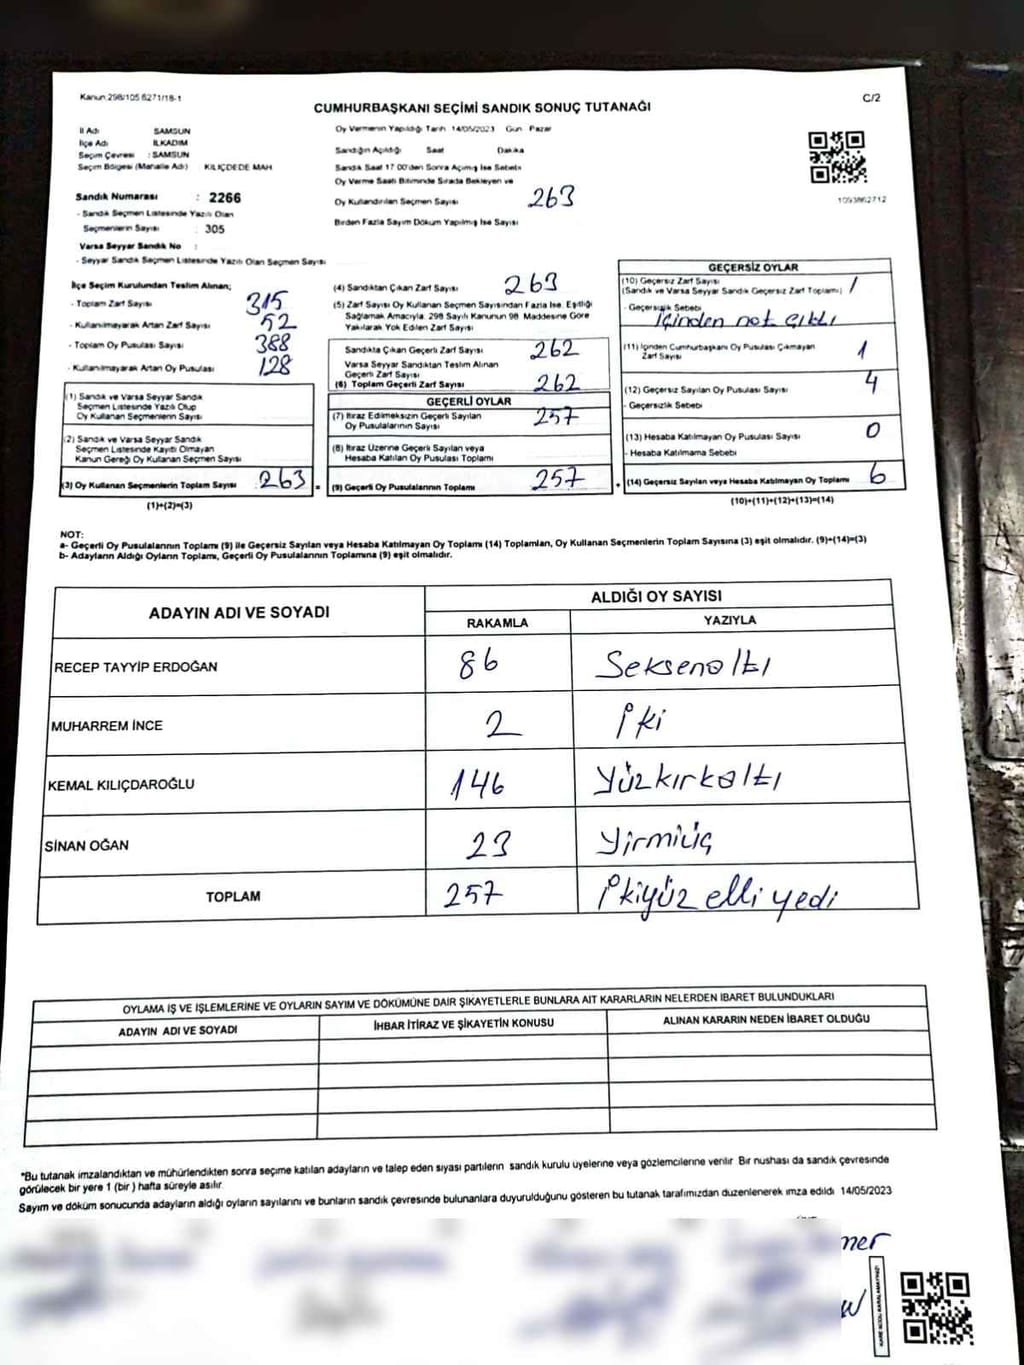 Kanun 298/105 6271/18-1
CUMHURBAŞKANI SEÇİMİ SANDIK SONUÇ TUTANAĞI
C/2
İl Adı SAMSUN
İlçe Adı İLKADIM
Seçim Çevresi : SAMSUN
Seçim Bölgesi (Mahalle Adı) KILIÇDEDE MAH
Sandık Numarası : 2266
- Sandık Seçmen Listesinde Yazılı Olan
Seçmenlerin Sayısı : 305
Varsa Seyyar Sandık No :
- Seyyar Sandık Seçmen Listesinde Yazılı Olan Seçmen Sayısı
Oy Vermenin Yapıldığı Tarih 14/05/2023 Gün Pazar
Sandığın Açıldığı Saat Dakika
Sandık Saat 17:00'den Sonra Açılmış İse Sebebi
Oy Verme Saati Bitiminde Sırada Bekleyen ve
Oy Kullandırılan Seçmen Sayısı 263
Birden Fazla Sayım Döküm Yapılmış İse Sayısı
1093862712
İlçe Seçim Kurulundan Teslim Alınan;
- Toplam Zarf Sayısı 315
- Kullanılmayarak Artan Zarf Sayısı 52
- Toplam Oy Pusulası Sayısı 388
- Kullanılmayarak Artan Oy Pusulası 128
(1) Sandık ve Varsa Seyyar Sandık
Seçmen Listesinde Yazılı Olup
Oy Kullanan Seçmenlerin Sayısı
(2) Sandık ve Varsa Seyyar Sandık
Seçmen Listesinde Kayıtlı Olmayan
Kanun Gereği Oy Kullanan Seçmen Sayısı
(3) Oy Kullanan Seçmenlerin Toplam Sayısı 263
(1)+(2)=(3)
(4) Sandıktan Çıkan Zarf Sayısı 263
(5) Zarf Sayısı Oy Kullanan Seçmen Sayısından Fazla İse, Eşitliği
Sağlamak Amacıyla, 298 Sayılı Kanunun 98 Maddesine Göre
Yakılarak Yok Edilen Zarf Sayısı
Sandıkta Çıkan Geçerli Zarf Sayısı 262
Varsa Seyyar Sandıktan Teslim Alınan
Geçerli Zarf Sayısı
(6) Toplam Geçerli Zarf Sayısı 262
GEÇERLİ OYLAR
(7) İtiraz Edilmeksizin Geçerli Sayılan
Oy Pusulalarının Sayısı 257
(8) İtiraz Üzerine Geçerli Sayılan veya
Hesaba Katılan Oy Pusulası Toplamı
(9) Geçerli Oy Pusulalarının Toplamı 257
GEÇERSİZ OYLAR
(10) Geçersiz Zarf Sayısı 1
(Sandık ve Varsa Seyyar Sandık Geçersiz Zarf Toplamı)
- Geçersizlik Sebebi
içinden not çıktı
(11) İçinden Cumhurbaşkanı Oy Pusulası Çıkmayan
Zarf Sayısı 1
(12) Geçersiz Sayılan Oy Pusulası Sayısı 4
- Geçersizlik Sebebi
(13) Hesaba Katılmayan Oy Pusulası Sayısı 0
- Hesaba Katılmama Sebebi
(14) Geçersiz Sayılan veya Hesaba Katılmayan Oy Toplamı 6
(10)+(11)+(12)+(13)=(14)
NOT:
a- Geçerli Oy Pusulalarının Toplamı (9) ile Geçersiz Sayılan veya Hesaba Katılmayan Oy Toplamı (14) Toplamları, Oy Kullanan Seçmenlerin Toplam Sayısına (3) eşit olmalıdır. (9)+(14)=(3)
b- Adayların Aldığı Oyların Toplamı, Geçerli Oy Pusulalarının Toplamına (9) eşit olmalıdır.
ADAYIN ADI VE SOYADI
ALDIĞI OY SAYISI
RAKAMLA YAZIYLA
RECEP TAYYİP ERDOĞAN 86 Seksenaltı
MUHARREM İNCE 2 İki
KEMAL KILIÇDAROĞLU 146 Yüzkırkaltı
SİNAN OĞAN 23 Yirmiüç
TOPLAM 257 İkiyüz elli yedi
OYLAMA İŞ VE İŞLEMLERİNE VE OYLARIN SAYIM VE DÖKÜMÜNE DAİR ŞİKAYETLERLE BUNLARA AİT KARARLARIN NELERDEN İBARET BULUNDUKLARI
ADAYIN ADI VE SOYADI İHBAR İTİRAZ VE ŞİKAYETİN KONUSU ALINAN KARARIN NEDEN İBARET OLDUĞU
*Bu tutanak imzalandıktan ve mühürlendikten sonra seçime katılan adayların ve talep eden siyasi partilerin sandık kurulu üyelerine veya gözlemcilerine verilir Bir nushası da sandık çevresinde
görülecek bir yere 1 (bir) hafta süreyle asılır.
Sayım ve döküm sonucunda adayların aldığı oyların sayılarını ve bunların sandık çevresinde bulunanlara duyurulduğunu gösteren bu tutanak tarafımızdan düzenlenerek imza edildi 14/05/2023
mer